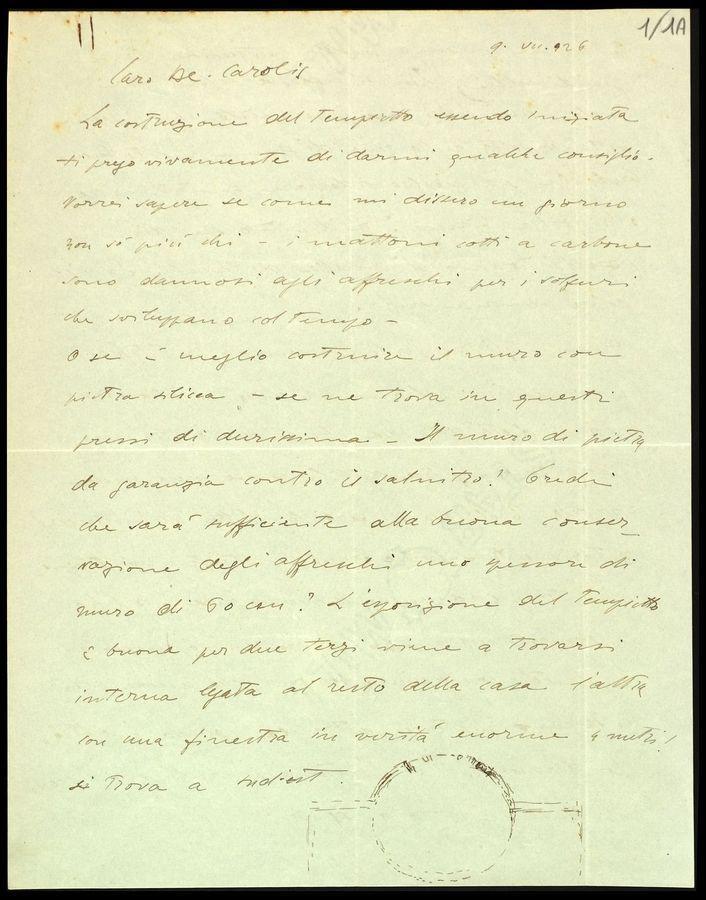 1/1A
9. VII. 926
Caro De. Carolis
La costruzione del Tempietto essendo iniziata
ti prego vivamente di darmi qualche consiglio.
Vorrei sapere se come mi dissero un giorno
non so più chi - i mattoni cotti a carbone
sono dannosi agli affreschi per i solfuri
che sviluppano col tempo -
O se è meglio costruire il muro con
pietra silicea - se ne trova in questi
pressi di durissima - Il muro di pietra
da garanzia contro il salnitro? Credi
che sarà sufficiente alla buona conser_
vazione degli affreschi uno spessore di
muro di 60 cm? L'esposizione del Tempietto
è buona per due terzi viene a trovarsi
interna legata al resto della casa l'altra
con una finestra in verità enorme 4 metri!
si trova a sud-est.